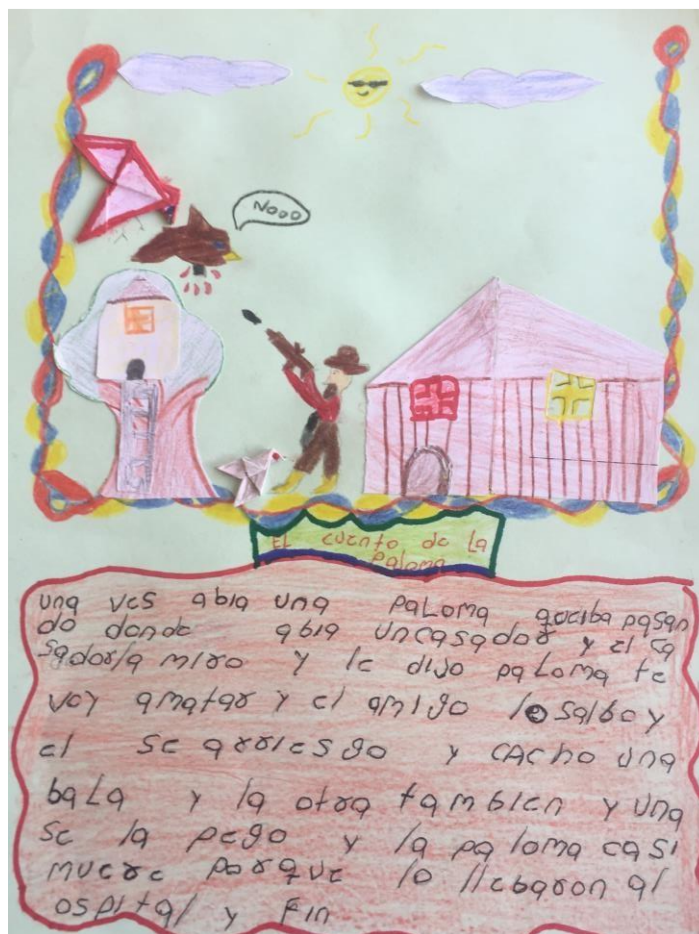 Nooo
El cuento de la
paloma
una ves abia una paloma queiba pasan
do donde abia uncasador y el ca
sador la miro y le dijo paloma te
voy amatar y el amigo lo salbo y
el se arriesgo y cacho una
bala y la otra tambien y una
se la pego y la paloma casi
muere porque lo llebaron al
ospital y fin